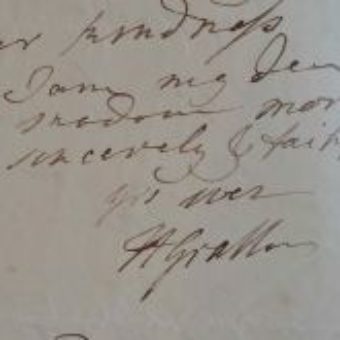 kindness
I am my Dear
madam mos
sincerely & faith
yrs ever
HGrattan